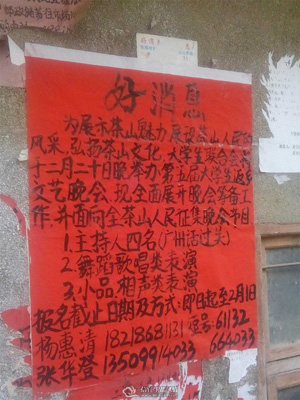 好消息
为展示茶山魅力，展设茶山人民的
风采，弘扬茶山文化，大学生联合会
于二月二十日举办第五届大学生返乡
文艺晚会，现全面展开晚会筹备工
作，并面向全茶山人民征集晚会节目
1.主持人四名(广州话过关)
2.舞蹈歌唱类表演
3.小品相声类表演
报名截止日期及方式：即日起至2月1
杨惠清 18218681131 短号：61132
张华登 13509914033 664033